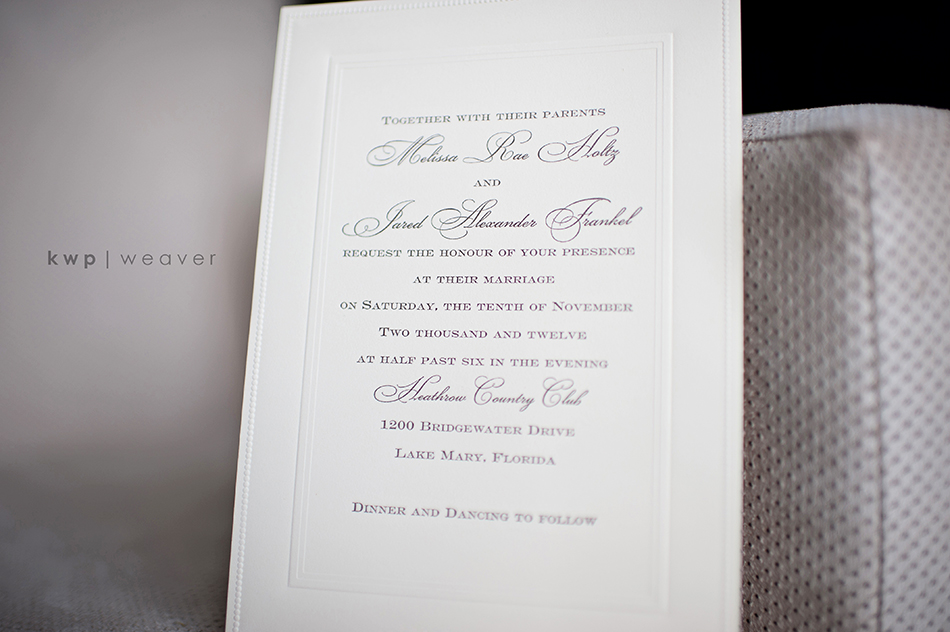 Together with their parents
Melissa Rae Holtz
and
Jared Alexander Frankel
request the honour of your presence
at their marriage
on Saturday, the tenth of November
Two thousand and twelve
at half past six in the evening
Heathrow Country Club
1200 Bridgewater Drive
Lake Mary, Florida
Dinner and Dancing to follow
kwp | weaver